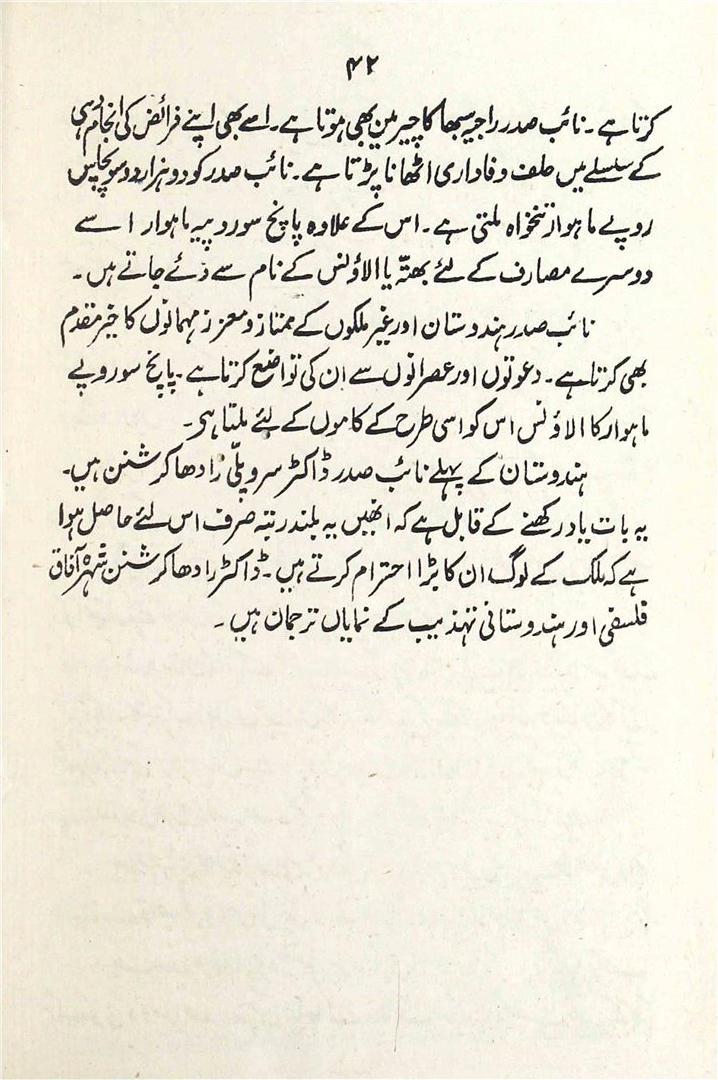 ۴۲
کرتا ہے۔ نائب صدر راجیہ سبھا کا چیرمین بھی ہوتا ہے۔ اسے بھی اپنے فرائض کی انجام دہی
کے سلسلے میں حلف وفاداری اٹھانا پڑتا ہے۔ نائب صدر کو دو ہزار دو سو پچاس
روپے ماہوار تنخواہ ملتی ہے۔ اس کے علاوہ پانچ سو روپیہ ماہوار اسے
دوسرے مصارف کے لئے بھتّہ یا الاؤنس کے نام سے دئے جاتے ہیں۔
نائب صدر ہندوستان اور غیر ملکوں کے ممتاز و معزز مہمانوں کا خیر مقدم
بھی کرتا ہے۔ دعوتوں اور عصرانوں سے ان کی تواضع کرتا ہے۔ پانچ سو روپے
ماہوار کا الاؤنس اس کو اسی طرح کے کاموں کے لئے ملتا ہی۔
ہندوستان کے پہلے نائب صدر ڈاکٹر سروپلّی رادھا کرشنن ہیں۔
یہ بات یاد رکھنے کے قابل ہے کہ انھیں یہ بلند رتبہ صرف اس لئے حاصل ہوا
ہے کہ ملک کے لوگ ان کا بڑا احترام کرتے ہیں۔ ڈاکٹر رادھا کرشنن شہرۂ آفاق
فلسفی اور ہندوستانی تہذیب کے نمایاں ترجمان ہیں۔